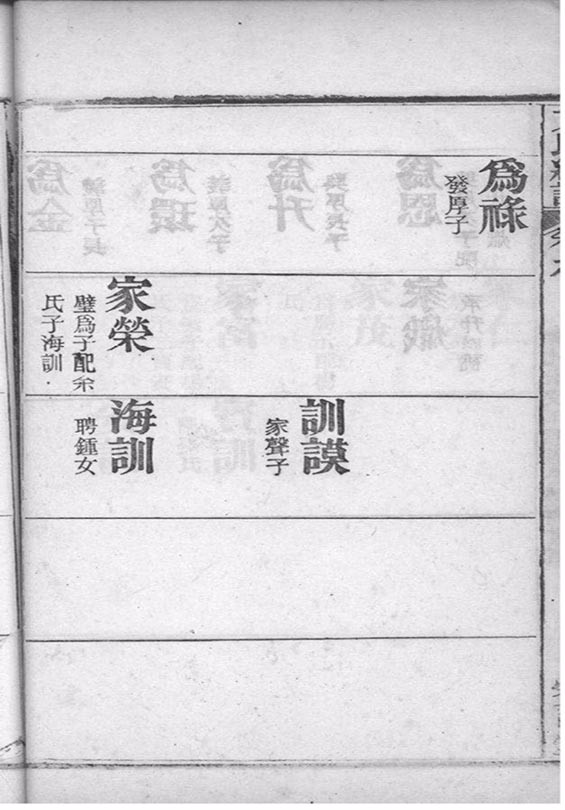 為祿
發厚子
家榮
璧為子配余
氏子海訓
訓謨
家聲子
海訓
聘鍾女